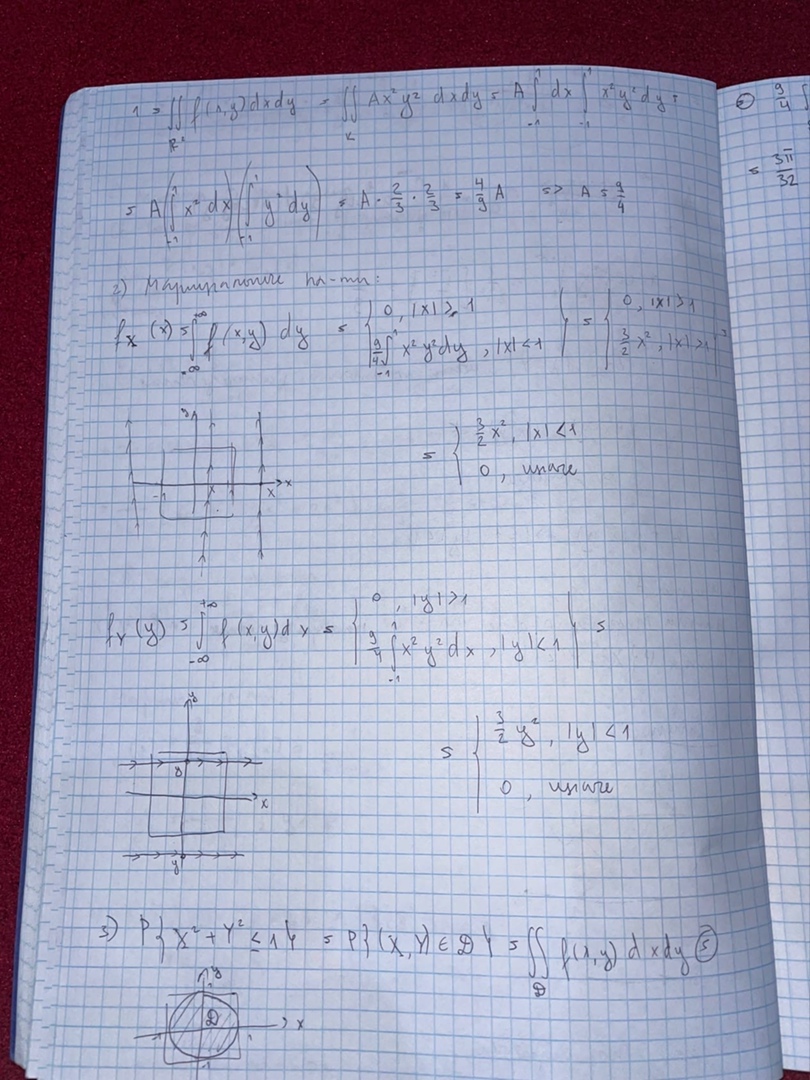 1 = ∬_{R²} f(x,y) dx dy = ∬_K Ax²y² dx dy = A ∫_{-1}^{1} dx ∫_{-1}^{1} x²y² dy =
= A (∫_{-1}^{1} x² dx) (∫_{-1}^{1} y² dy) = A · 2/3 · 2/3 = 4/9 A => A = 9/4
2) Маргинальные пл-ти:
f_X (x) = ∫_{-∞}^{+∞} f(x,y) dy = { 0, |x| ≥ 1 ; 9/4 ∫_{-1}^{1} x²y² dy, |x| < 1 } = { 0, |x| > 1 ; 3/2 x², |x| > 1 } =
y
-1 x x x
= { 3/2 x², |x| < 1 ; 0, иначе
f_Y (y) = ∫_{-∞}^{+∞} f(x,y) dx = { 0, |y| > 1 ; 9/4 ∫_{-1}^{1} x²y² dx, |y| < 1 } =
y
y x
y
= { 3/2 y², |y| < 1 ; 0, иначе
3) P{X² + Y² ≤ 1} = P{(X,Y) ∈ D} = ∬_D f(x,y) dx dy ⊜
y
1
D x
-1 1
-1
⊜ 9/4 ∫
= 3π/32